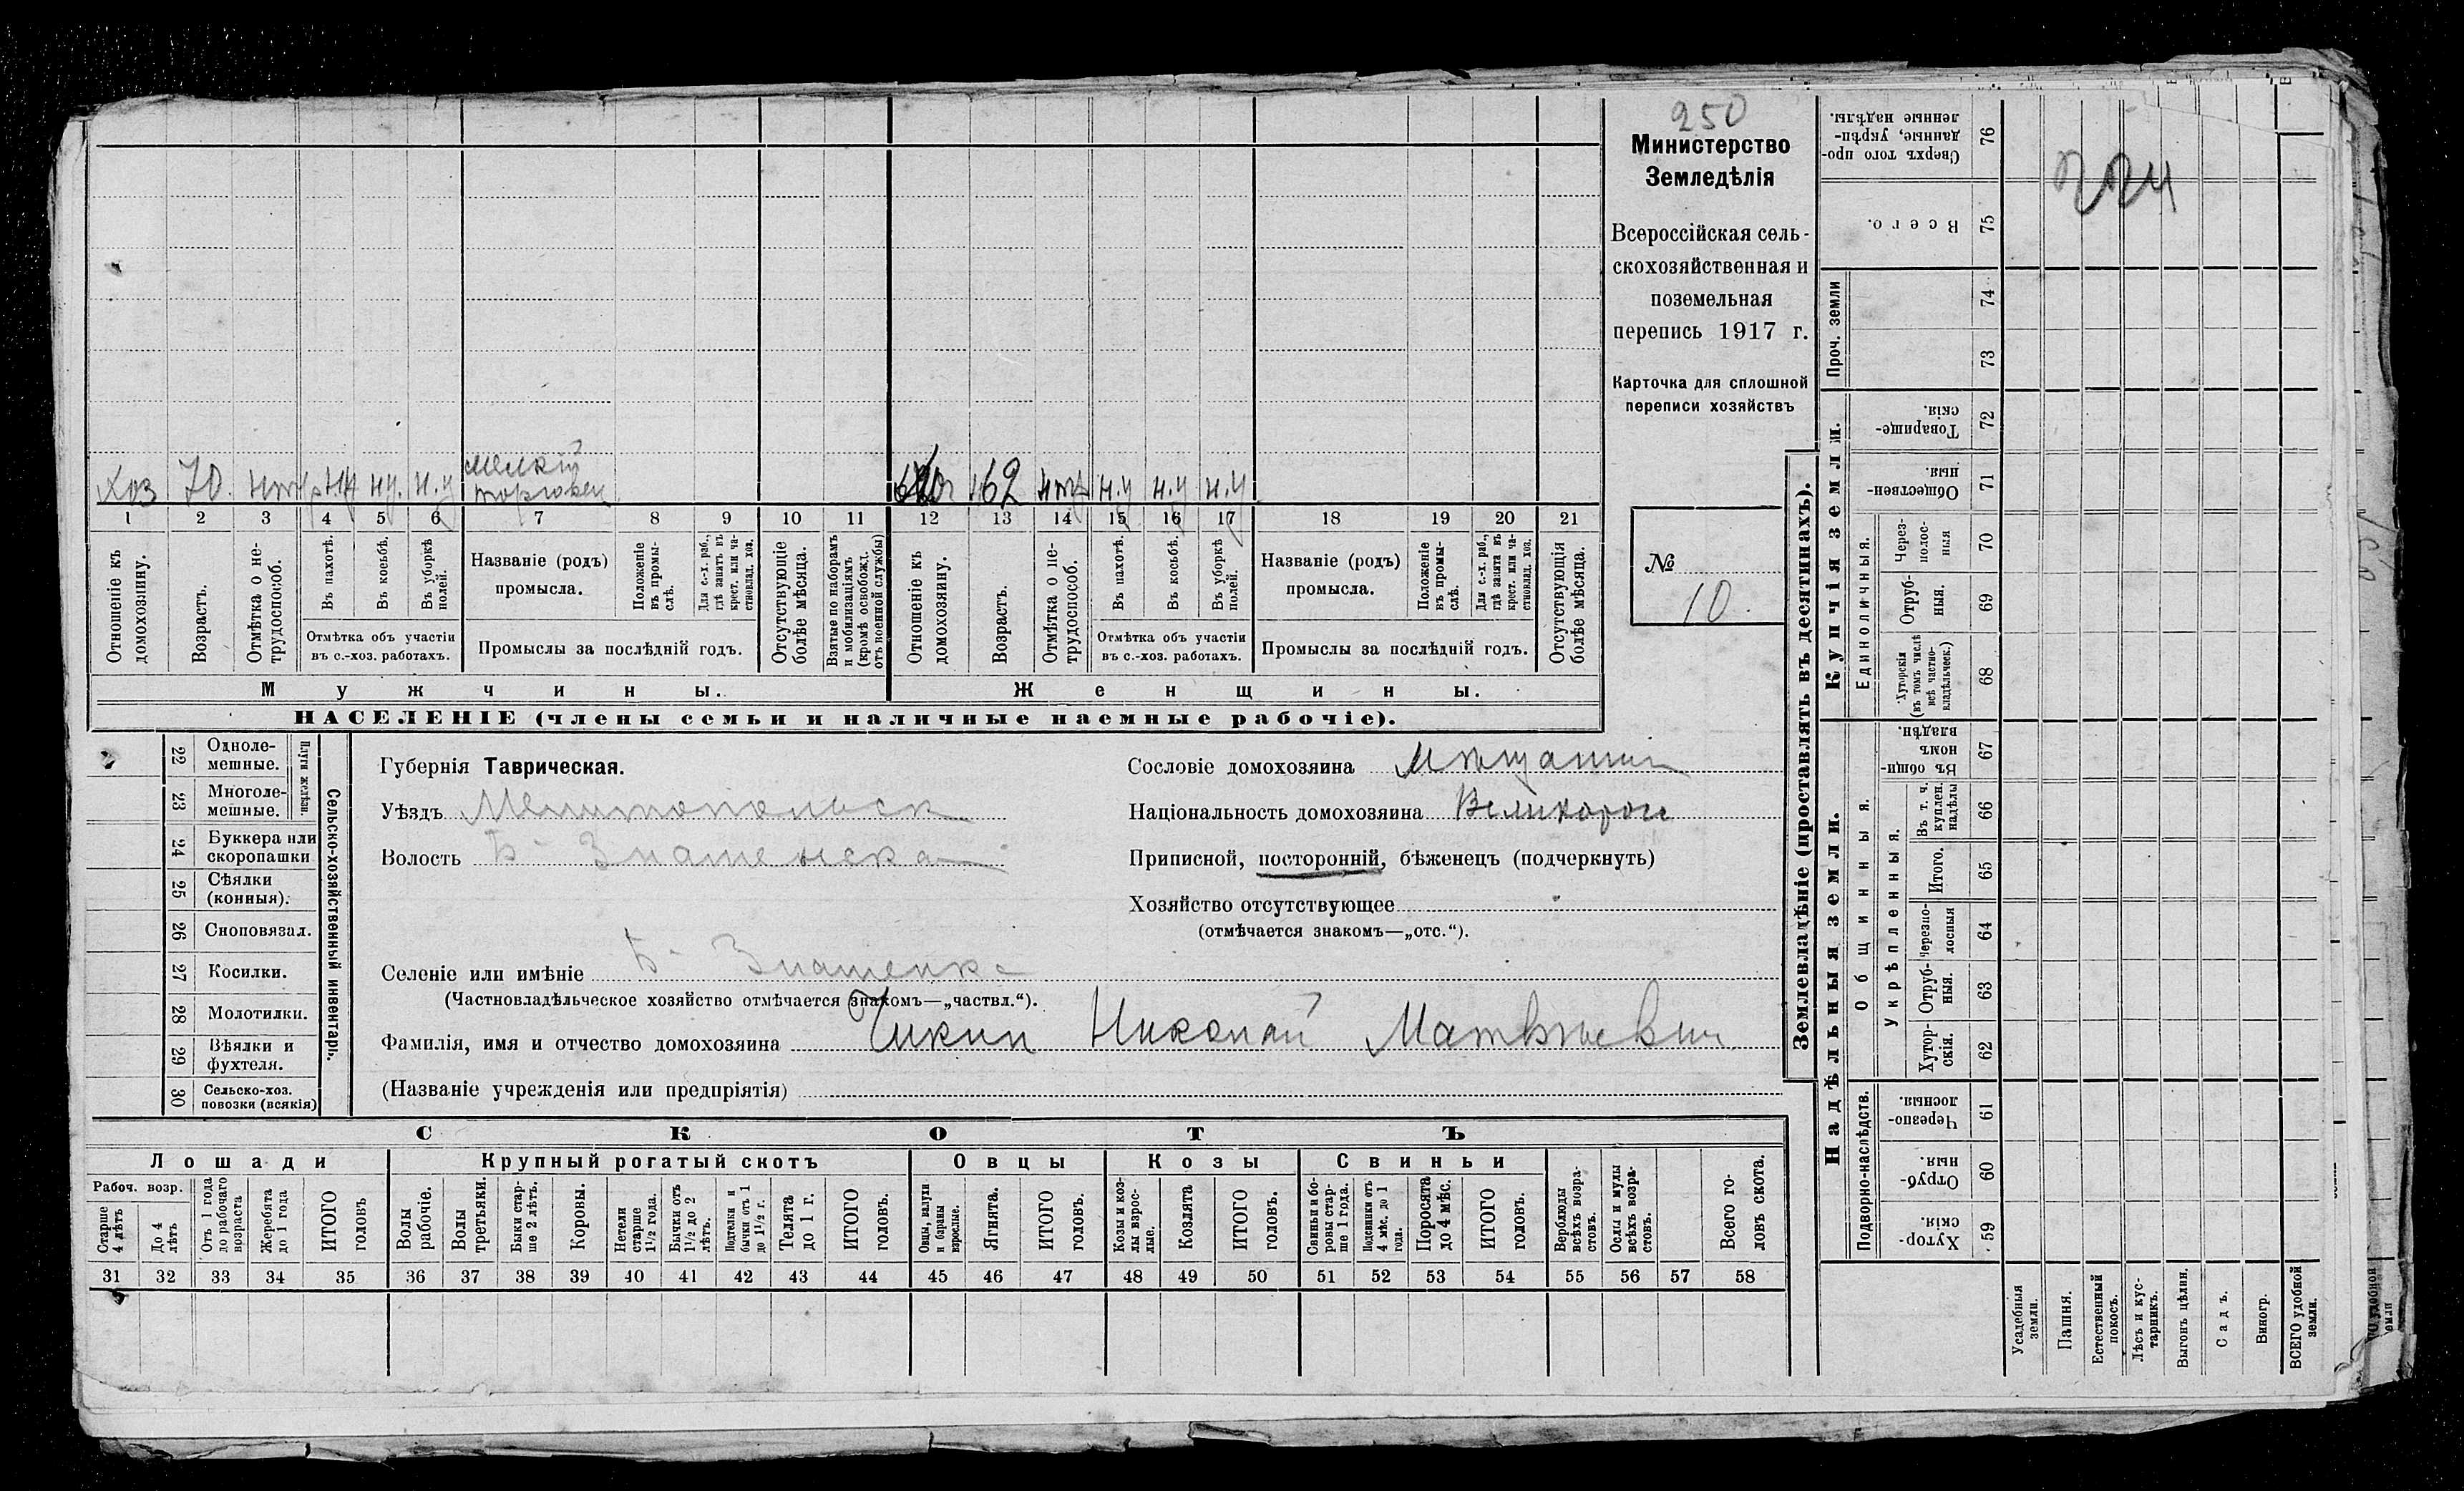 250
Министерство
Земледѣлія
Всероссійская сель-
скохозяйственная и
поземельная
перепись 1917 г.
Карточка для сплошной
переписи хозяйствъ
№
10.
Хоз 70. н.у н.у. н.у мелкій
торговец
62 н.у н.у н.у
1 2 3 4 5 6 7 8 9 10 11 12 13 14 15 16 17 18 19 20 21
Отношеніе къ домохозяину.
Возрастъ.
Отмѣтка о не-трудоспособ.
Въ пахотѣ.
Въ косьбѣ.
Въ уборкѣ полей.
Отмѣтка объ участіи
въ с.-хоз. работахъ.
Названіе (родъ)
промысла.
Положеніе въ промы-слѣ.
Для с.-х. раб., гдѣ занятъ въ крест. или ча-стновлад. хоз.
Промыслы за послѣдній годъ.
Отсутствующіе болѣе мѣсяца.
Взятые по наборамъ и мобилизаціямъ (кромѣ освобожд. отъ военной службы)
Отношеніе къ домохозяину.
Возрастъ.
Отмѣтка о не-трудоспособ.
Въ пахотѣ.
Въ косьбѣ.
Въ уборкѣ полей.
Отмѣтка объ участіи
въ с.-хоз. работахъ.
Названіе (родъ)
промысла.
Положеніе въ промы-слѣ.
Для с.-х. раб., гдѣ занята въ крест. или ча-стновлад. хоз.
Промыслы за послѣдній годъ.
Отсутствующія болѣе мѣсяца.
Мужчины.
Женщины.
НАСЕЛЕНІЕ (члены семьи и наличные наемные рабочіе).
22 Одноле-мешные.
23 Многоле-мешные.
Плуги желѣзн.
24 Буккера или скоропашки
25 Сѣялки (конныя).
26 Сноповязал.
27 Косилки.
28 Молотилки.
29 Вѣялки и фухтеля.
30 Сельско-хоз. повозки (всякія)
Сельско-хозяйственный инвентарь.
Губернія Таврическая.
Уѣздъ Мелитопольск
Волость Б- Знаменская
Селеніе или имѣніе Б- Знаменка
(Частновладѣльческое хозяйство отмѣчается знакомъ—„частвл.“).
Фамилія, имя и отчество домохозяина Чикин Николай Матвѣевич
(Названіе учрежденія или предпріятія)
Сословіе домохозяина Мѣщанин
Національность домохозяина Великоросс
Приписной, посторонній, бѣженецъ (подчеркнуть)
Хозяйство отсутствующее
(отмѣчается знакомъ—„отс.“).
СКОТЪ
Лошади
Крупный рогатый скотъ
Овцы
Козы
Свиньи
Рабоч. возр.
Старше 4 лѣтъ
До 4 лѣтъ
Отъ 1 года до рабочаго возраста
Жеребята до 1 года
ИТОГО головъ
Волы рабочіе.
Волы третьяки.
Быки стар-ше 2 лѣтъ.
Коровы.
Нетели старше 1½ года.
Бычки отъ 1½ до 2 лѣтъ.
Подтелки и бычки отъ 1 до 1½ г.
Телята до 1 г.
ИТОГО головъ.
Овцы, валухи и бараны взрослые.
Ягнята.
ИТОГО головъ.
Козы и коз-лы взрос-лые.
Козлята
ИТОГО головъ.
Свиньи и бо-ровы стар-ше 1 года.
Подсвинки отъ 4 мѣс. до 1 года.
Поросята до 4 мѣс.
ИТОГО головъ.
Верблюды всѣхъ возра-стовъ.
Ослы и мулы всѣхъ возра-стовъ.
Всего го-ловъ скота.
31 32 33 34 35 36 37 38 39 40 41 42 43 44 45 46 47 48 49 50 51 52 53 54 55 56 57 58
Землевладѣніе (проставлять въ десятинахъ).
Купчія земли.
Надѣльныя земли.
Проч. земли
Сверхъ того про-данные, укрѣп-ленные надѣлы. 76
224
Всего. 75
74
73
Товарище-скія. 72
Обществен-ныя. 71
Единоличныя.
Через-полос-ныя 70
Отруб-ныя. 69
Хуторскія (въ томъ числѣ всѣ частно-владѣльческ.) 68
Общинныя.
Въ общи-номъ владѣн. 67
Укрѣпленныя.
Въ т. ч. куплен. надѣлы 66
Итого. 65
Черезпо-лосныя 64
Отруб-ныя. 63
Хутор-скія. 62
Подворно-наслѣдств.
Черезпо-лосныя. 61
Отруб-ныя. 60
Хутор-скія. 59
Усадебныя земли.
Пашня.
Естественный покосъ.
Лѣсъ и кус-тарникъ.
Выгонъ цѣлин.
Садъ.
Виногр.
ВСЕГО удобной земли.